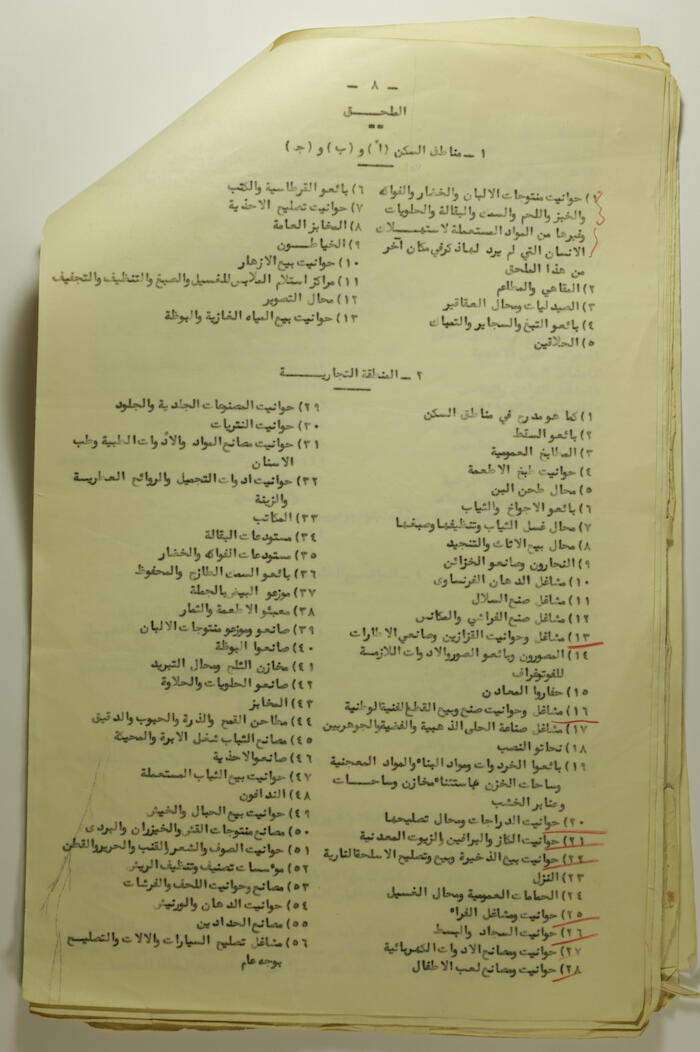 — ٨ —
الملحـــــق
١ ــ مناطق السكن (أ) و (ب) و (ج)
١) حوانيت منتوجات الالبان والخضار والفواكه
والخبز واللحم والسمك والبقالة والحلويات
وغيرها من المواد المستعملة لاستهـــلاك
الانسان التي لم يرد لها ذكر في مكان آخر
من هذا الملحق
٢) المقاهي والمطاعم
٣) الصيدليات ومحال العقاقير
٤) بائعو التبغ والسجاير والتمباك
٥) الحلاقين
٦) بائعو القرطاسية والكتب
٧) حوانيت تصليح الاحذية
٨) المخابز العامة
٩) الخياطــــون
١٠) حوانيت بيع الازهار
١١) مراكز استلام الملابس للغسيل والصبغ والتنظيف والتجفيف
١٢) محال التصوير
١٣) حوانيت بيع المياه الغازية والبوظة
٢ ــ المنطقة التجاريـــــــة
١) كما هو مدرج في مناطق السكن
٢) بائعو السقط
٣) المطابخ العمومية
٤) حوانيت طبخ الاطعمة
٥) محال طحن البن
٦) بائعو الاجواخ والثياب
٧) محال غسل الثياب وتنظيفها وصبغها
٨) محال بيع الاثاث والتنجيد
٩) النجارون وصانعو الخزائن
١٠) مشاغل الدهان الفرنساوى
١١) مشاغل صنع السلال
١٢) مشاغل صنع الفراشي والمكانس
١٣) مشاغل وحوانيت القزازين وصانعي الاطارات
١٤) المصورون وبائعو الصور والادوات اللازمــة
للفوتوغراف
١٥) حفاروا المعادن
١٦) مشاغل وحوانيت صنع وبيع القطع الفنية الوطنية
١٧) مشاغل صناعة الحلى الذهبية والفضية والجوهريين
١٨) نحاتو النصب
١٩) بائعوا الخردوات ومواد البناء والمواد المعدنية
وساحات الخزن باستثناء مخازن وساحـــات
وعنابر الخشب
٢٠) حوانيت الدراجات ومحال تصليحها
٢١) حوانيت الكاز والبرافين والزيوت المعدنية
٢٢) حوانيت بيع الذخيرة وبيع وتصليح الاسلحة النارية
٢٣) النزل
٢٤) الحمامات العمومية ومحال الغسيل
٢٥) حوانيت ومشاغل الفراء
٢٦) حوانيت السجاد والبسط
٢٧) حوانيت ومصانع الادوات الكهربائية
٢٨) حوانيت ومصانع لعب الاطفال
٢٩) حوانيت المصنوعات الجلدية والجلود
٣٠) حوانيت النثريات
٣١) حوانيت مصانع المواد والأدوات الطبية وطب
الاسنان
٣٢) حوانيت ادوات التجميل والروائح العطاريـة
والزينة
٣٣) المكاتب
٣٤) مستودعات البقالة
٣٥) مستودعات الفواكه والخضار
٣٦) بائعو السمك الطازج والمحفوظ
٣٧) موزعو البيض بالجملة
٣٨) معبئو الاطعمة والثمار
٣٩) صانعو وموزعو منتوجات الالبان
٤٠) صانعوا البوظة
٤١) مخازن الثلج ومحال التبريد
٤٢) صانعو الحلويات والحلاوة
٤٣) المخابز
٤٤) مطاحن القمح والذرة والحبوب والدقيق
٤٥) مصانع الثياب شغل الابرة والمحيكة
٤٦) صانعو الاحذية
٤٧) حوانيت بيع الثياب المستعملة
٤٨) الندافون
٤٩) حوانيت بيع الحبال والخيش
٥٠) مصانع منتوجات القش والخيزران والبردى
٥١) حوانيت الصوف والشعر والقنب والحرير والقطن
٥٢) موءسسات تصنيف وتنظيف الريش
٥٣) مصانع وحوانيت اللحف والفرشات
٥٤) حوانيت الدهان والورنيش
٥٥) مصانع الحدادين
٥٦) مشاغل تصليح السيارات والالات والتصليـح
بوجه عام